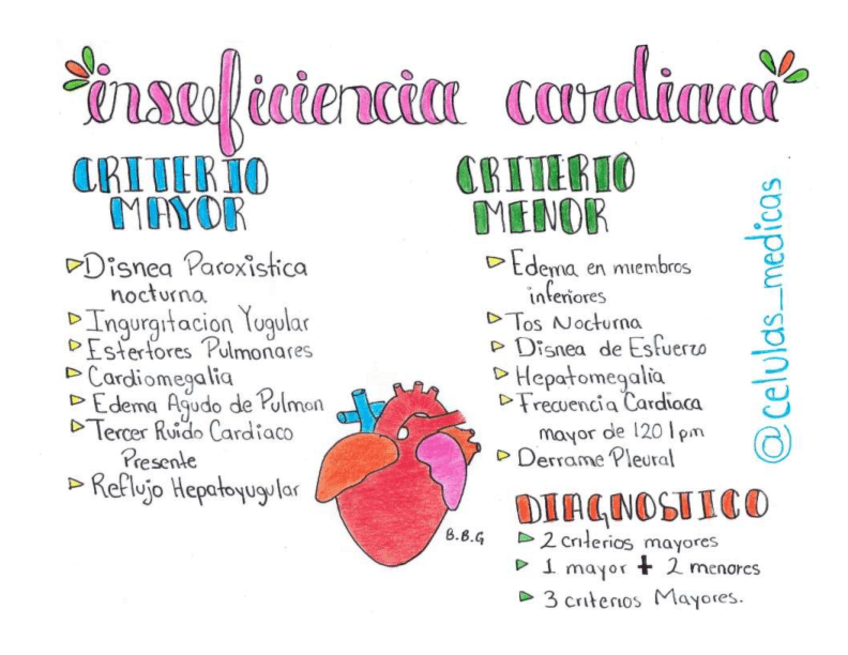 insuficiencia cardiaca
CRITERIO
MAYOR
Disnea Paroxistica
nocturna
Ingurgitacion Yugular
Estertores Pulmonares
Cardiomegalia
Edema Agudo de Pulmon
Tercer Ruido Cardiaco
Presente
Reflujo Hepatoyugular
CRITERIO
MENOR
Edema en miembros
inferiores
Tos Nocturna
Disnea de Esfuerzo
Hepatomegalia
Frecuencia Cardiaca
mayor de 120 lpm
Derrame Pleural
DIAGNOSTICO
2 criterios mayores
1 mayor + 2 menores
3 criterios Mayores.
B.B.G
@celulas_medicas